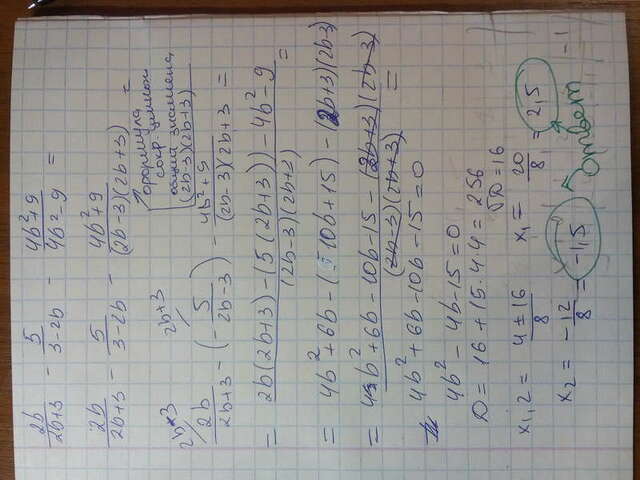 2b/(2b+3) - 5/(3-2b) - (4b²+9)/(4b²-9) =
2b/(2b+3) - 5/(3-2b) - (4b²+9)/((2b-3)(2b+3)) =
формула
сокр.
общий знаменат.
(2b-3)(2b+3)
2b-3/ 2b+3/
2b/(2b+3) - (- 5/(2b-3)) - (4b²+9)/((2b-3)(2b+3)) =
= (2b(2b+3) - (5(2b+3)) - 4b² - 9)/((2b-3)(2b+3)) =
= 4b² + 6b - (10b+15) - (2b+3)(2b-3)
= (4b² + 6b - 10b - 15 - (2b+3)(2b-3))/((2b-3)(2b+3)) =
4b² + 6b - 10b - 15 = 0
4b² - 4b - 15 = 0
D = 16 + 15·4·4 = 256
√D = 16
x1,2 = (4 ± 16)/8 x1 = 20/8 = 2,5
x2 = -12/8 = -1,5 ответ -1